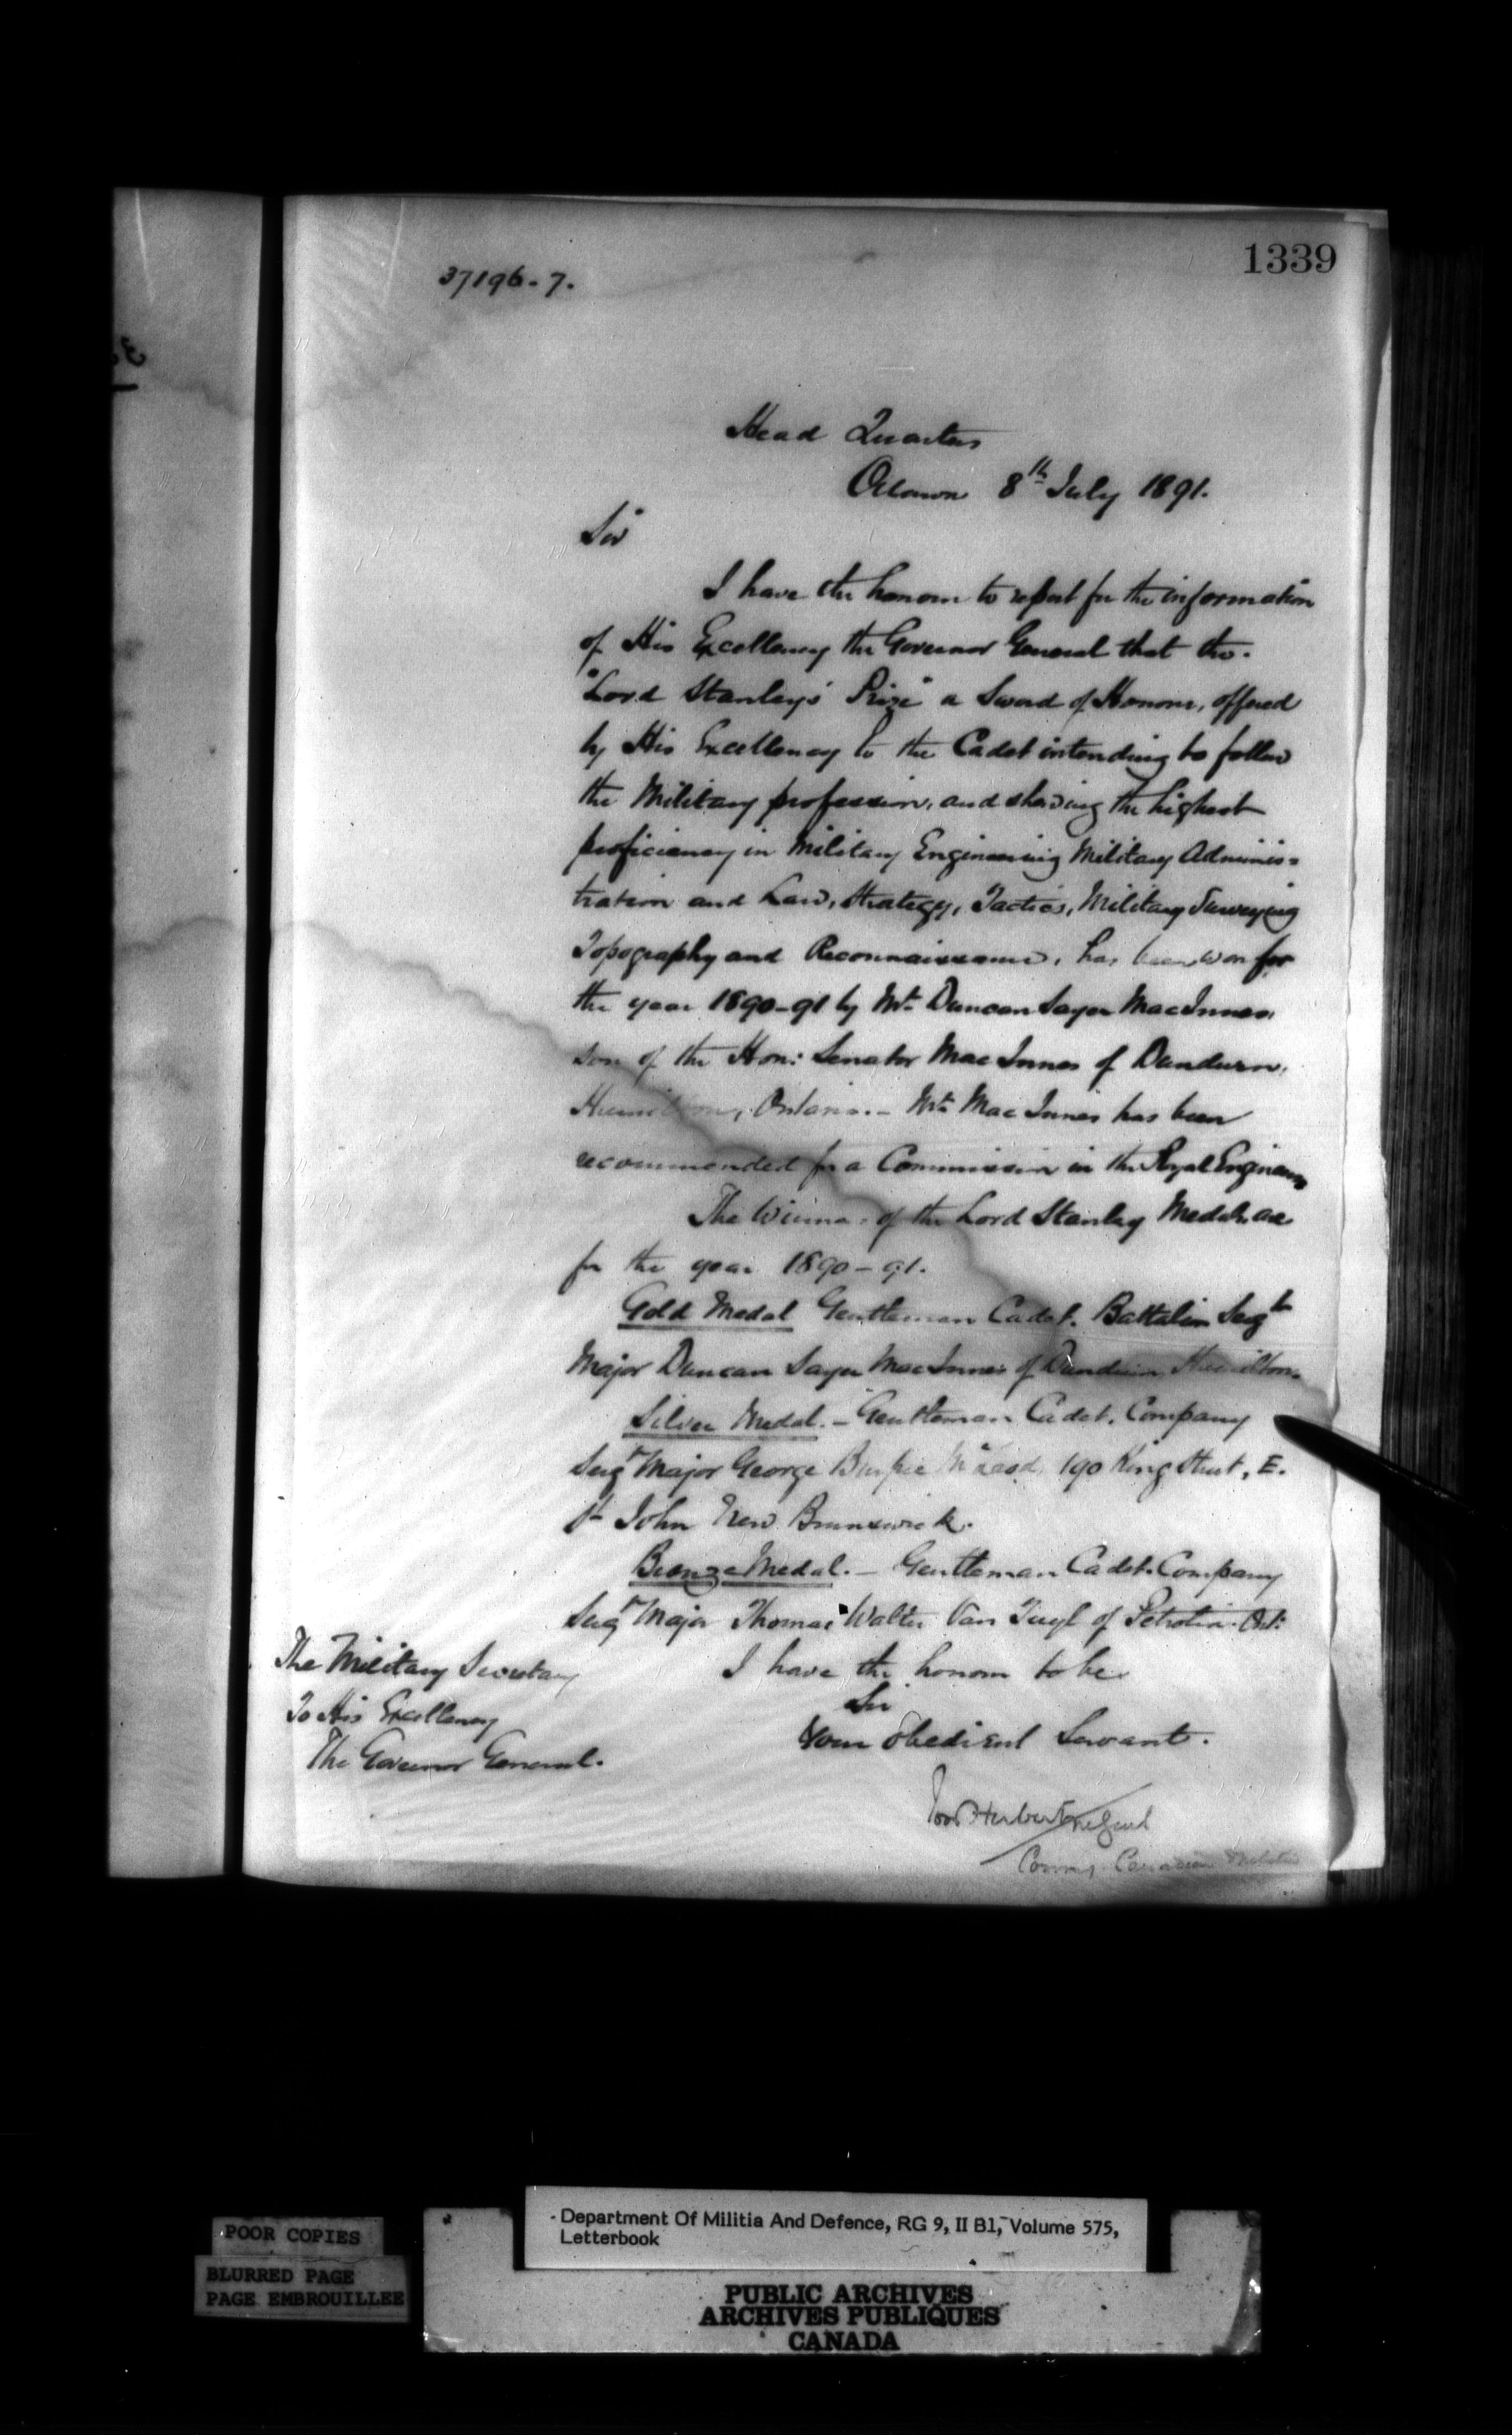 1339
37196-7.
Head Quarters
Ottawa 8th July 1891.
Sir
I have the honour to report for the information
of His Excellency the Governor General that the
"Lord Stanley's Prize" a Sword of Honour, offered
by His Excellency to the Cadet intending to follow
the Military profession, and showing the highest
proficiency in Military Engineering Military Adminis=
tration and Law, Strategy, Tactics, Military Surveying
Topography and Reconnaissance, has been won for
the year 1890-91 by Mr. Duncan Sayer MacInnes,
son of the Hon: Senator MacInnes of Dundurn,
Hamilton, Ontario. - Mr. MacInnes has been
recommended for a Commission in the Royal Engineers
The Winners of the Lord Stanley Medals are
for the year 1890-91.
Gold Medal Gentleman Cadet. Battalion Sergt
Major Duncan Sayer MacInnes of Dundurn Hamilton.
Silver Medal. - Gentleman Cadet. Company
Sergt Major George Burpee McLeod, 190 King Street, E.
St John New Brunswick.
Bronze Medal. - Gentleman Cadet. Company
Sergt Major Thomas Walter Van Tuyl of Petrolia. Ont:
I have the honour to be
Sir
Your Obedient Servant.
The Military Secretary
To His Excellency
The Governor General.
Herbert M Genl
Commg. Canadian Militia
POOR COPIES
BLURRED PAGE
PAGE EMBROUILLEE
Department Of Militia And Defence, RG 9, II B1, Volume 575,
Letterbook
PUBLIC ARCHIVES
ARCHIVES PUBLIQUES
CANADA